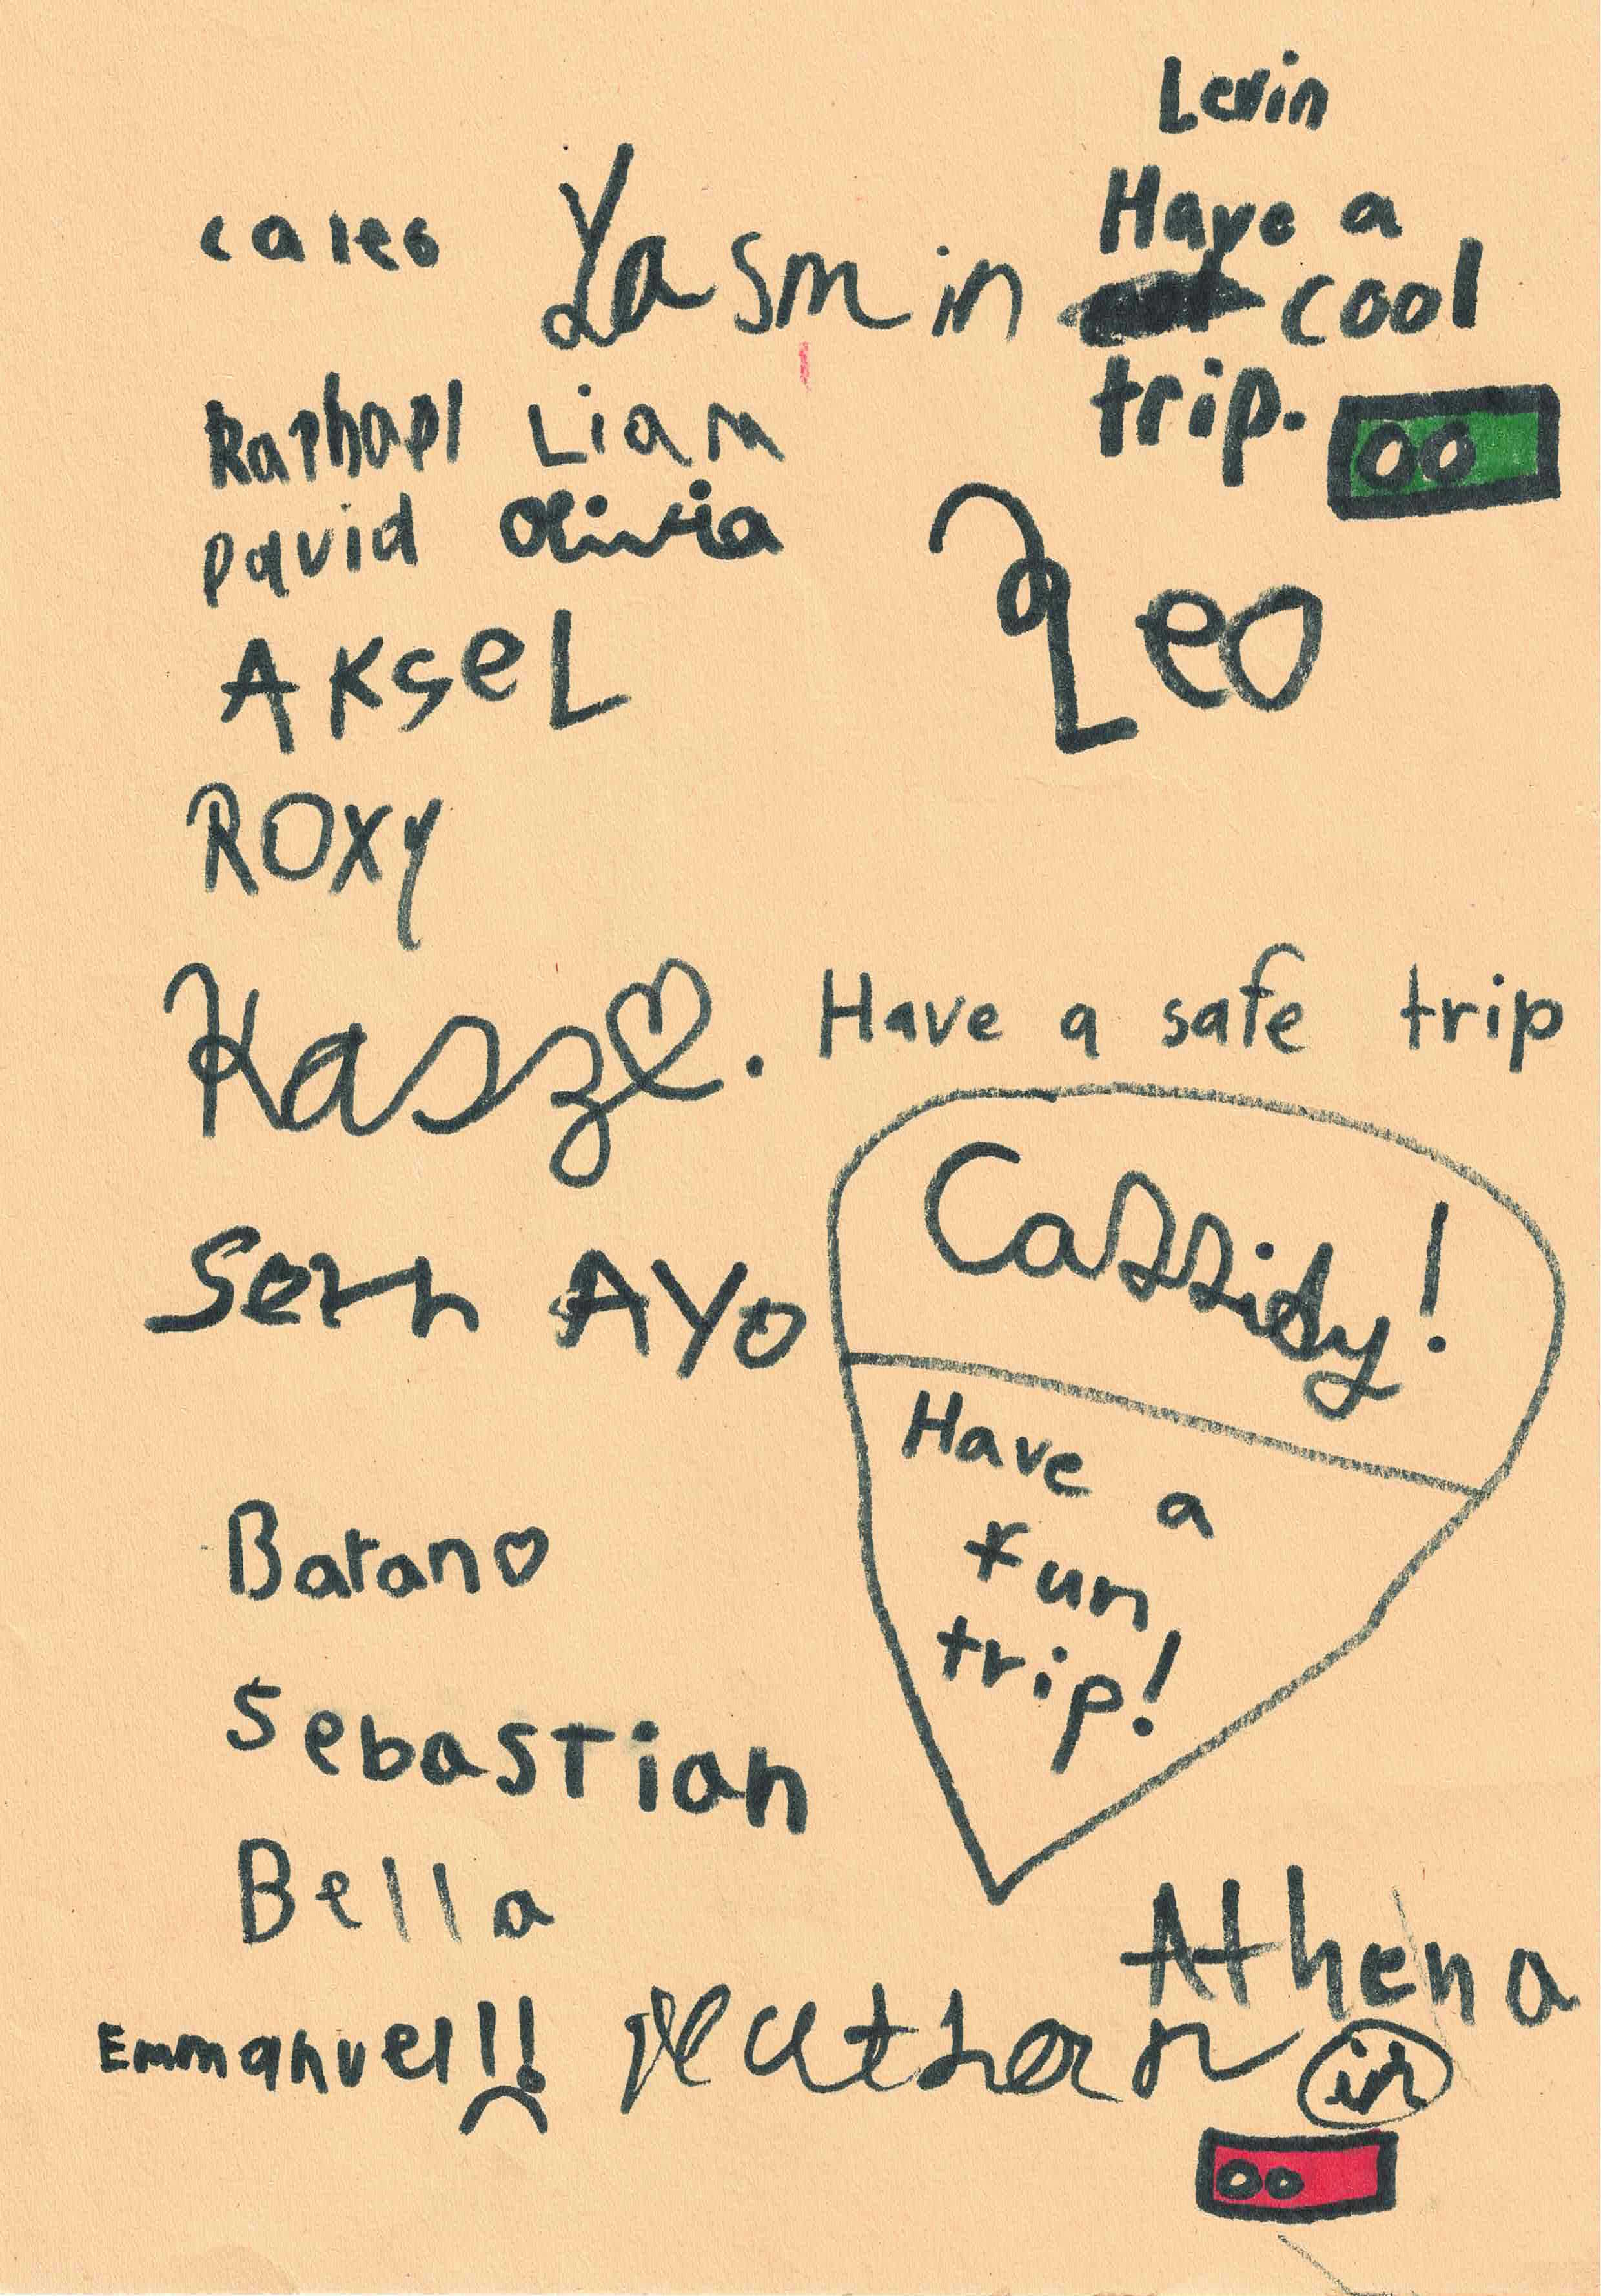 Levin
Have a
cool
trip.
Yasmin
Raphael Liam
David Olivia
Leo
AKSeL
ROXY
Have a safe trip
AYO
Cassidy!
Have a
fun
trip!
SebaSTian
Bella
Athena
Emmanuel!! Nathan